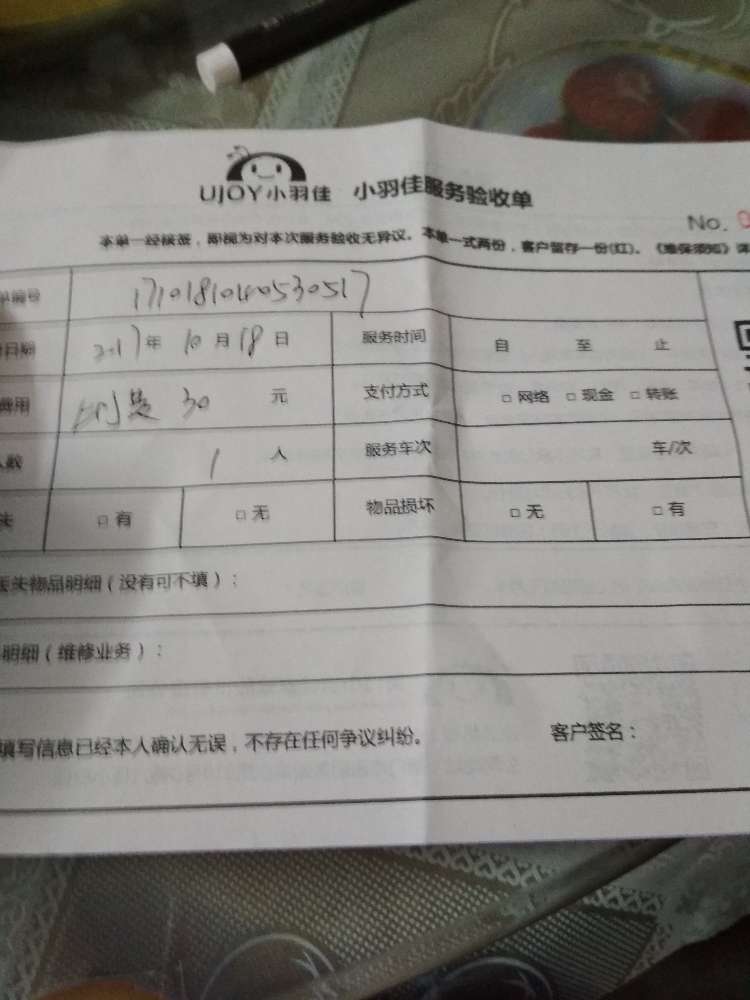 UJOY小羽佳 小羽佳服务验收单
No. 0
本单一经接签，即视为对本次服务验收无异议。本单一式两份，客户留存一份(红)。《维保须知》详
单编号 1710181040530517
日期 2017年 10月 18日 服务时间 自 至 止
费用 30 元 支付方式 □ 网络 □ 现金 □ 转账
人数 1 人 服务车次 车/次
失 □ 有 □ 无 物品损坏 □ 无 □ 有
丢失物品明细（没有可不填）：
明细（维修业务）：
填写信息已经本人确认无误，不存在任何争议纠纷。 客户签名：